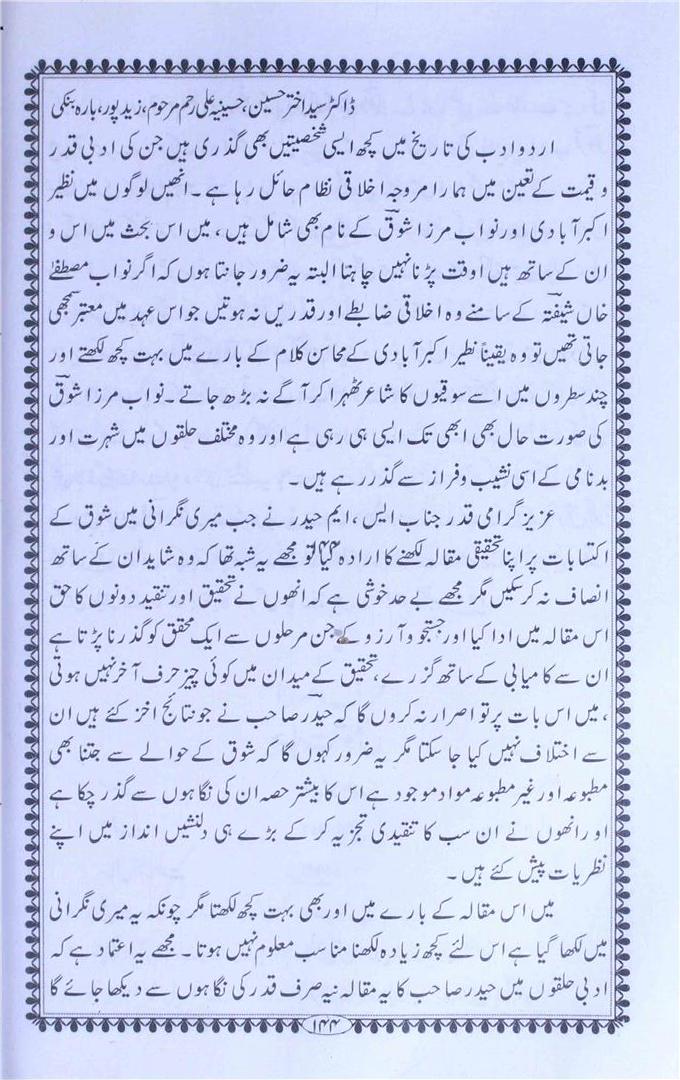 ڈاکٹر سید اختر حسین، حسینیہ علی رحم مرحوم، زید پور، بارہ بنکی
اردو ادب کی تاریخ میں کچھ ایسی شخصیتیں بھی گذری ہیں جن کی ادبی قدر
و قیمت کے تعین میں ہمارا مروجہ اخلاقی نظام حائل رہا ہے۔ انھیں لوگوں میں نظیر
اکبرآبادی اور نواب مرزا شوق کے نام بھی شامل ہیں، میں اس بحث میں اس و
ان کے ساتھ ہیں اوقت پڑنا نہیں چاہتا البتہ یہ ضرور جانتا ہوں کہ اگر نواب مصطفےٰ
خاں شیفتہ کے سامنے وہ اخلاقی ضابطے اور قدریں نہ ہوتیں جو اس عہد میں معتبر سمجھی
جاتی تھیں تو وہ یقیناً نظیر اکبرآبادی کے محاسن کلام کے بارے میں بہت کچھ لکھتے اور
چند سطروں میں اسے سوقیوں کا شاعر ٹھہرا کر آگے نہ بڑھ جاتے۔ نواب مرزا شوق
کی صورت حال بھی ابھی تک ایسی ہی رہی ہے اور وہ مختلف حلقوں میں شہرت اور
بدنامی کے اسی نشیب و فراز سے گذر رہے ہیں۔
عزیز گرامی قدر جناب ایس، ایم حیدر نے جب میری نگرانی میں شوق کے
اکتسابات پر اپنا تحقیقی مقالہ لکھنے کا ارادہ کیا تو مجھے یہ شبہ تھا کہ وہ شاید ان کے ساتھ
انصاف نہ کرسکیں مگر مجھے بے حد خوشی ہے کہ انھوں نے تحقیق اور تنقید دونوں کا حق
اس مقالہ میں ادا کیا اور جستجو و آرزو کے جن مرحلوں سے ایک محقق کو گذرنا پڑتا ہے
ان سے کامیابی کے ساتھ گزرے، تحقیق کے میدان میں کوئی چیز حرف آخر نہیں ہوتی
، میں اس بات پر تو اصرار نہ کروں گا کہ حیدر صاحب نے جو نتائج اخز کئے ہیں ان
سے اختلاف نہیں کیا جا سکتا مگر یہ ضرور کہوں گا کہ شوق کے حوالے سے جتنا بھی
مطبوعہ اور غیر مطبوعہ مواد موجود ہے اس کا بیشتر حصہ ان کی نگاہوں سے گذر چکا ہے
اور انھوں نے ان سب کا تنقیدی تجزیہ کر کے بڑے ہی دلنشیں انداز میں اپنے
نظریات پیش کئے ہیں۔
میں اس مقالہ کے بارے میں اور بھی بہت کچھ لکھتا مگر چونکہ یہ میری نگرانی
میں لکھا گیا ہے اس لئے کچھ زیادہ لکھنا مناسب معلوم نہیں ہوتا۔ مجھے یہ اعتماد ہے کہ
ادبی حلقوں میں حیدر صاحب کا یہ مقالہ نیہ صرف قدر کی نگاہوں سے دیکھا جائے گا
۱۴۴